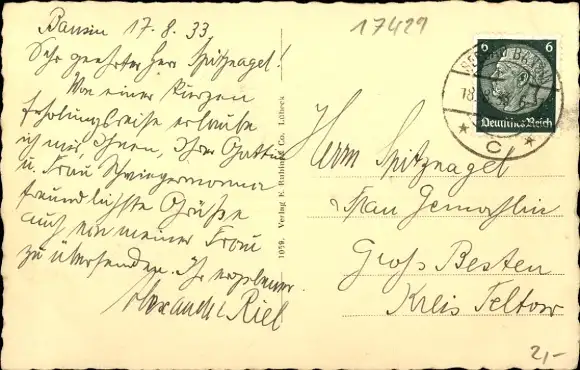 Bansin 17.8.33.
17429
Sehr geehrter Herr Spitznagel!
Von einer kurzen
Erholungsreise erlaube
ich mir, Ihnen, Ihrer Gattin
u. Frau Schwiegermama
freundlichste Grüße
auch von meiner Frau
zu übersenden. Ihr ergebener
Alexander Riel
1059. Verlag E. Co. Lübeck
6 6
Deutsches Reich
SEEBAD BANSIN
18.
C
Herrn Spitznagel
Frau Gemahlin
Groß Besten
Kreis Teltow
2,-